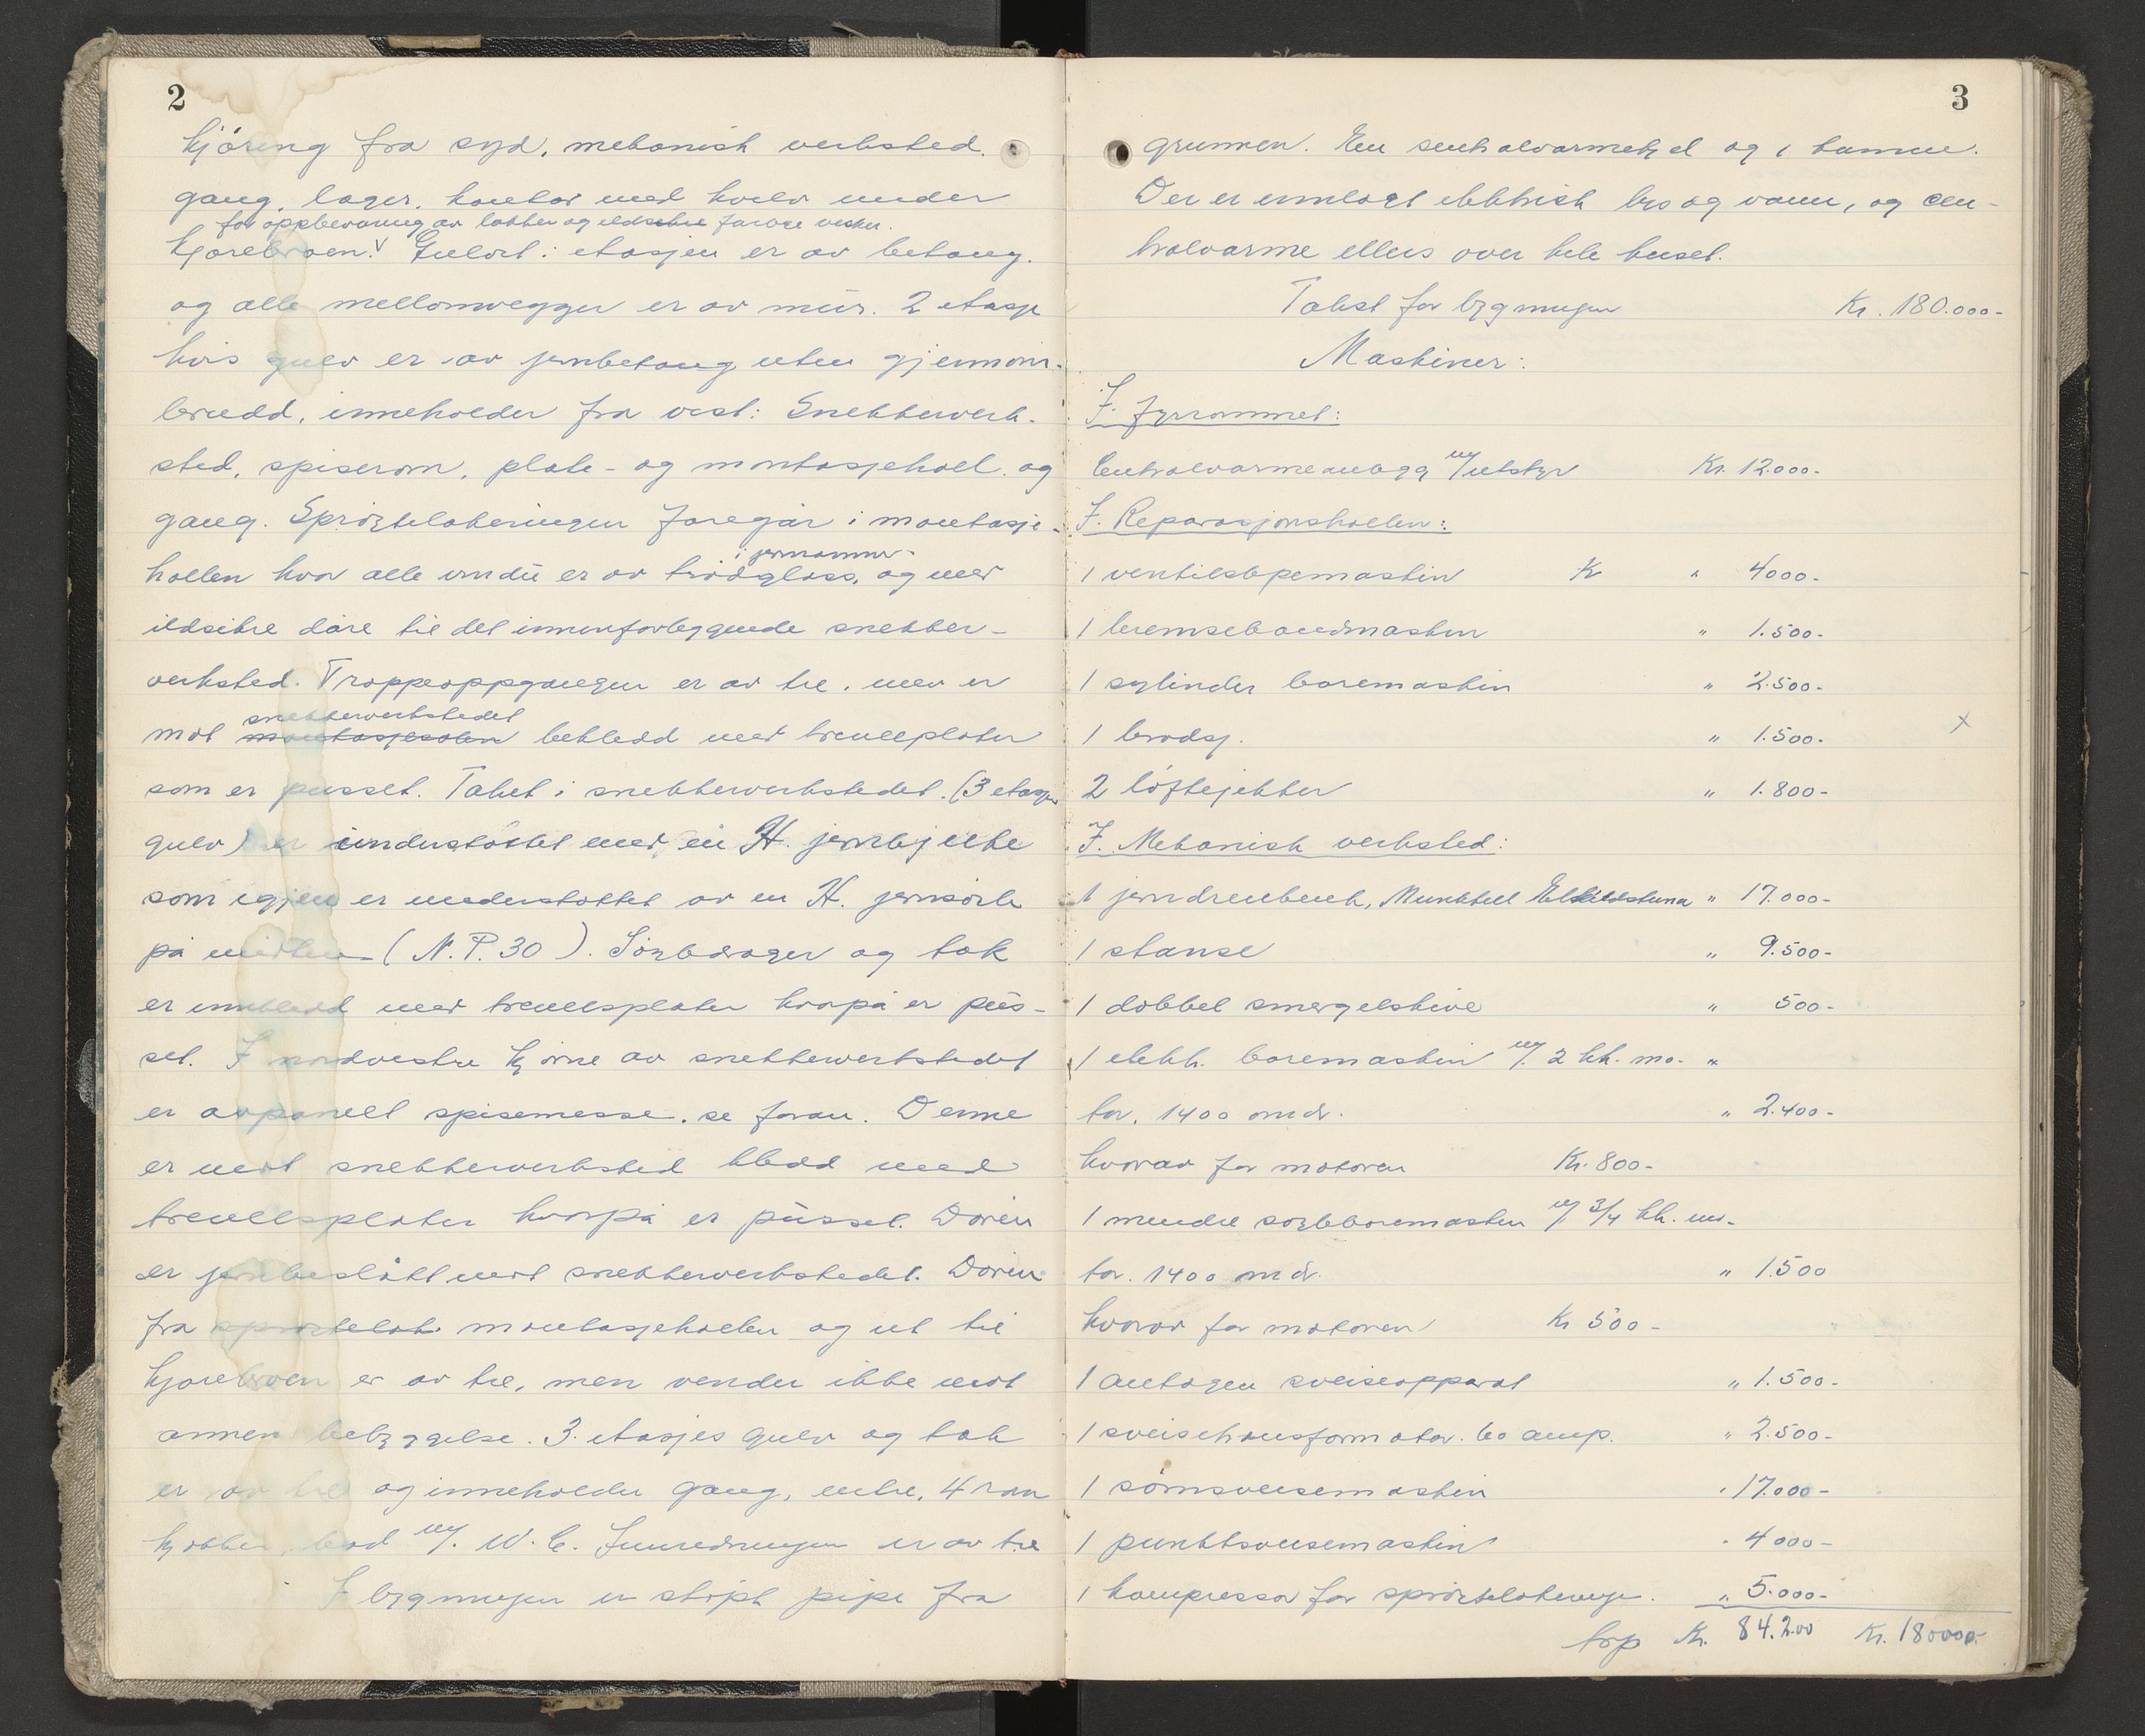 2
kjøring fra syd, mekanisk verksted,
gang, lager, kontor med hvelv under
for oppbevaring av lakker og ildsfarlige vesker.
kjørebroen. Gulvet i etasjen er av betong.
og alle mellomvegger er av mur. 2 etasje
hvis gulv er av jernbetong uten gjennom-
brudd, inneholder fra vest: Snekkerverk-
sted, spiserom, plate- og montasjehall, og
gang. Sprøytelakeringen foregår i montasje-
i jernrammer
hallen hvor alle vindu er av trådglass, og med
ildsikre døre til det innenforliggende snekker-
verksted. Trappeoppgangen er av tre, men er
snekkerverkstedet
mot montasjesalen bekledd med treullplater
som er pusset. Taket i snekkerverkstedet (3 etasjes
gulv) er understøttet med en H. jernbjelke
som igjen er understøttet av en H. jernsøile
på midten (N.P. 30). Søile, drager og tak
er innkledd med treullsplater hvorpå er pus-
set. I nordvestre hjørne av snekkerverkstedet
er avpanelt spisemesse, se foran. Denne
er mot snekkerverksted kledd med
treullsplater hvorpå er pusset. Døren
er jernbeslått mot snekkerverkstedet. Døren
fra sprøitelak. montasjehallen og ut til
kjørebroen er av tre, men vender ikke mot
annen bebyggelse. 3. etasjes gulv og tak
er av tre og inneholder gang, entre, 4 rom
kjøkken, bad m/. W.C. Innredningen er av tre
I bygningen er støpt pipe fra
3
grunnen. En sentralvarmekjel og 1 kamin.
Der er innlagt elektrisk lys og vann, og cen-
tralvarme ellers over hele huset.
Takst for bygningen Kr. 180.000-
Maskiner:
I. fyrrommet:
Centralvarmeanlegg m/utstyr Kr. 12.000-
I. Reparasjonshallen:
1 ventilslipemaskin K " 4000-
1 bremsebåndmaskin " 1.500-
1 sylinder boremaskin " 2.500-
1 brodsj. " 1.500- x
2 løftejekker " 1.800-
I. Mekanisk verksted:
1 jerndreiebenk, Munktell Eskilstuna " 17.000-
1 stanse " 9.500-
1 dobbel smergelskive " 500-
1 elektr. boremaskin m/. 2 hk. mo- "
tor, 1400 omdr. " 2.400-
hvorav for motoren Kr. 800-
1 mindre søileboremaskin m/ 3/4 hk. mo-
tor. 1400 omdr. " 1.500
hvorav for motoren Kr 500-
1 autogen sveiseapparat " 1.500-
1 sveisetransformator. 60 amp. " 2.500-
1 sømsveisemaskin " 17.000-
1 punktsveisemaskin " 4000-
1 kompressor for sprøitelakering. " 5.000-
trp Kr. 84.200 Kr. 180000-